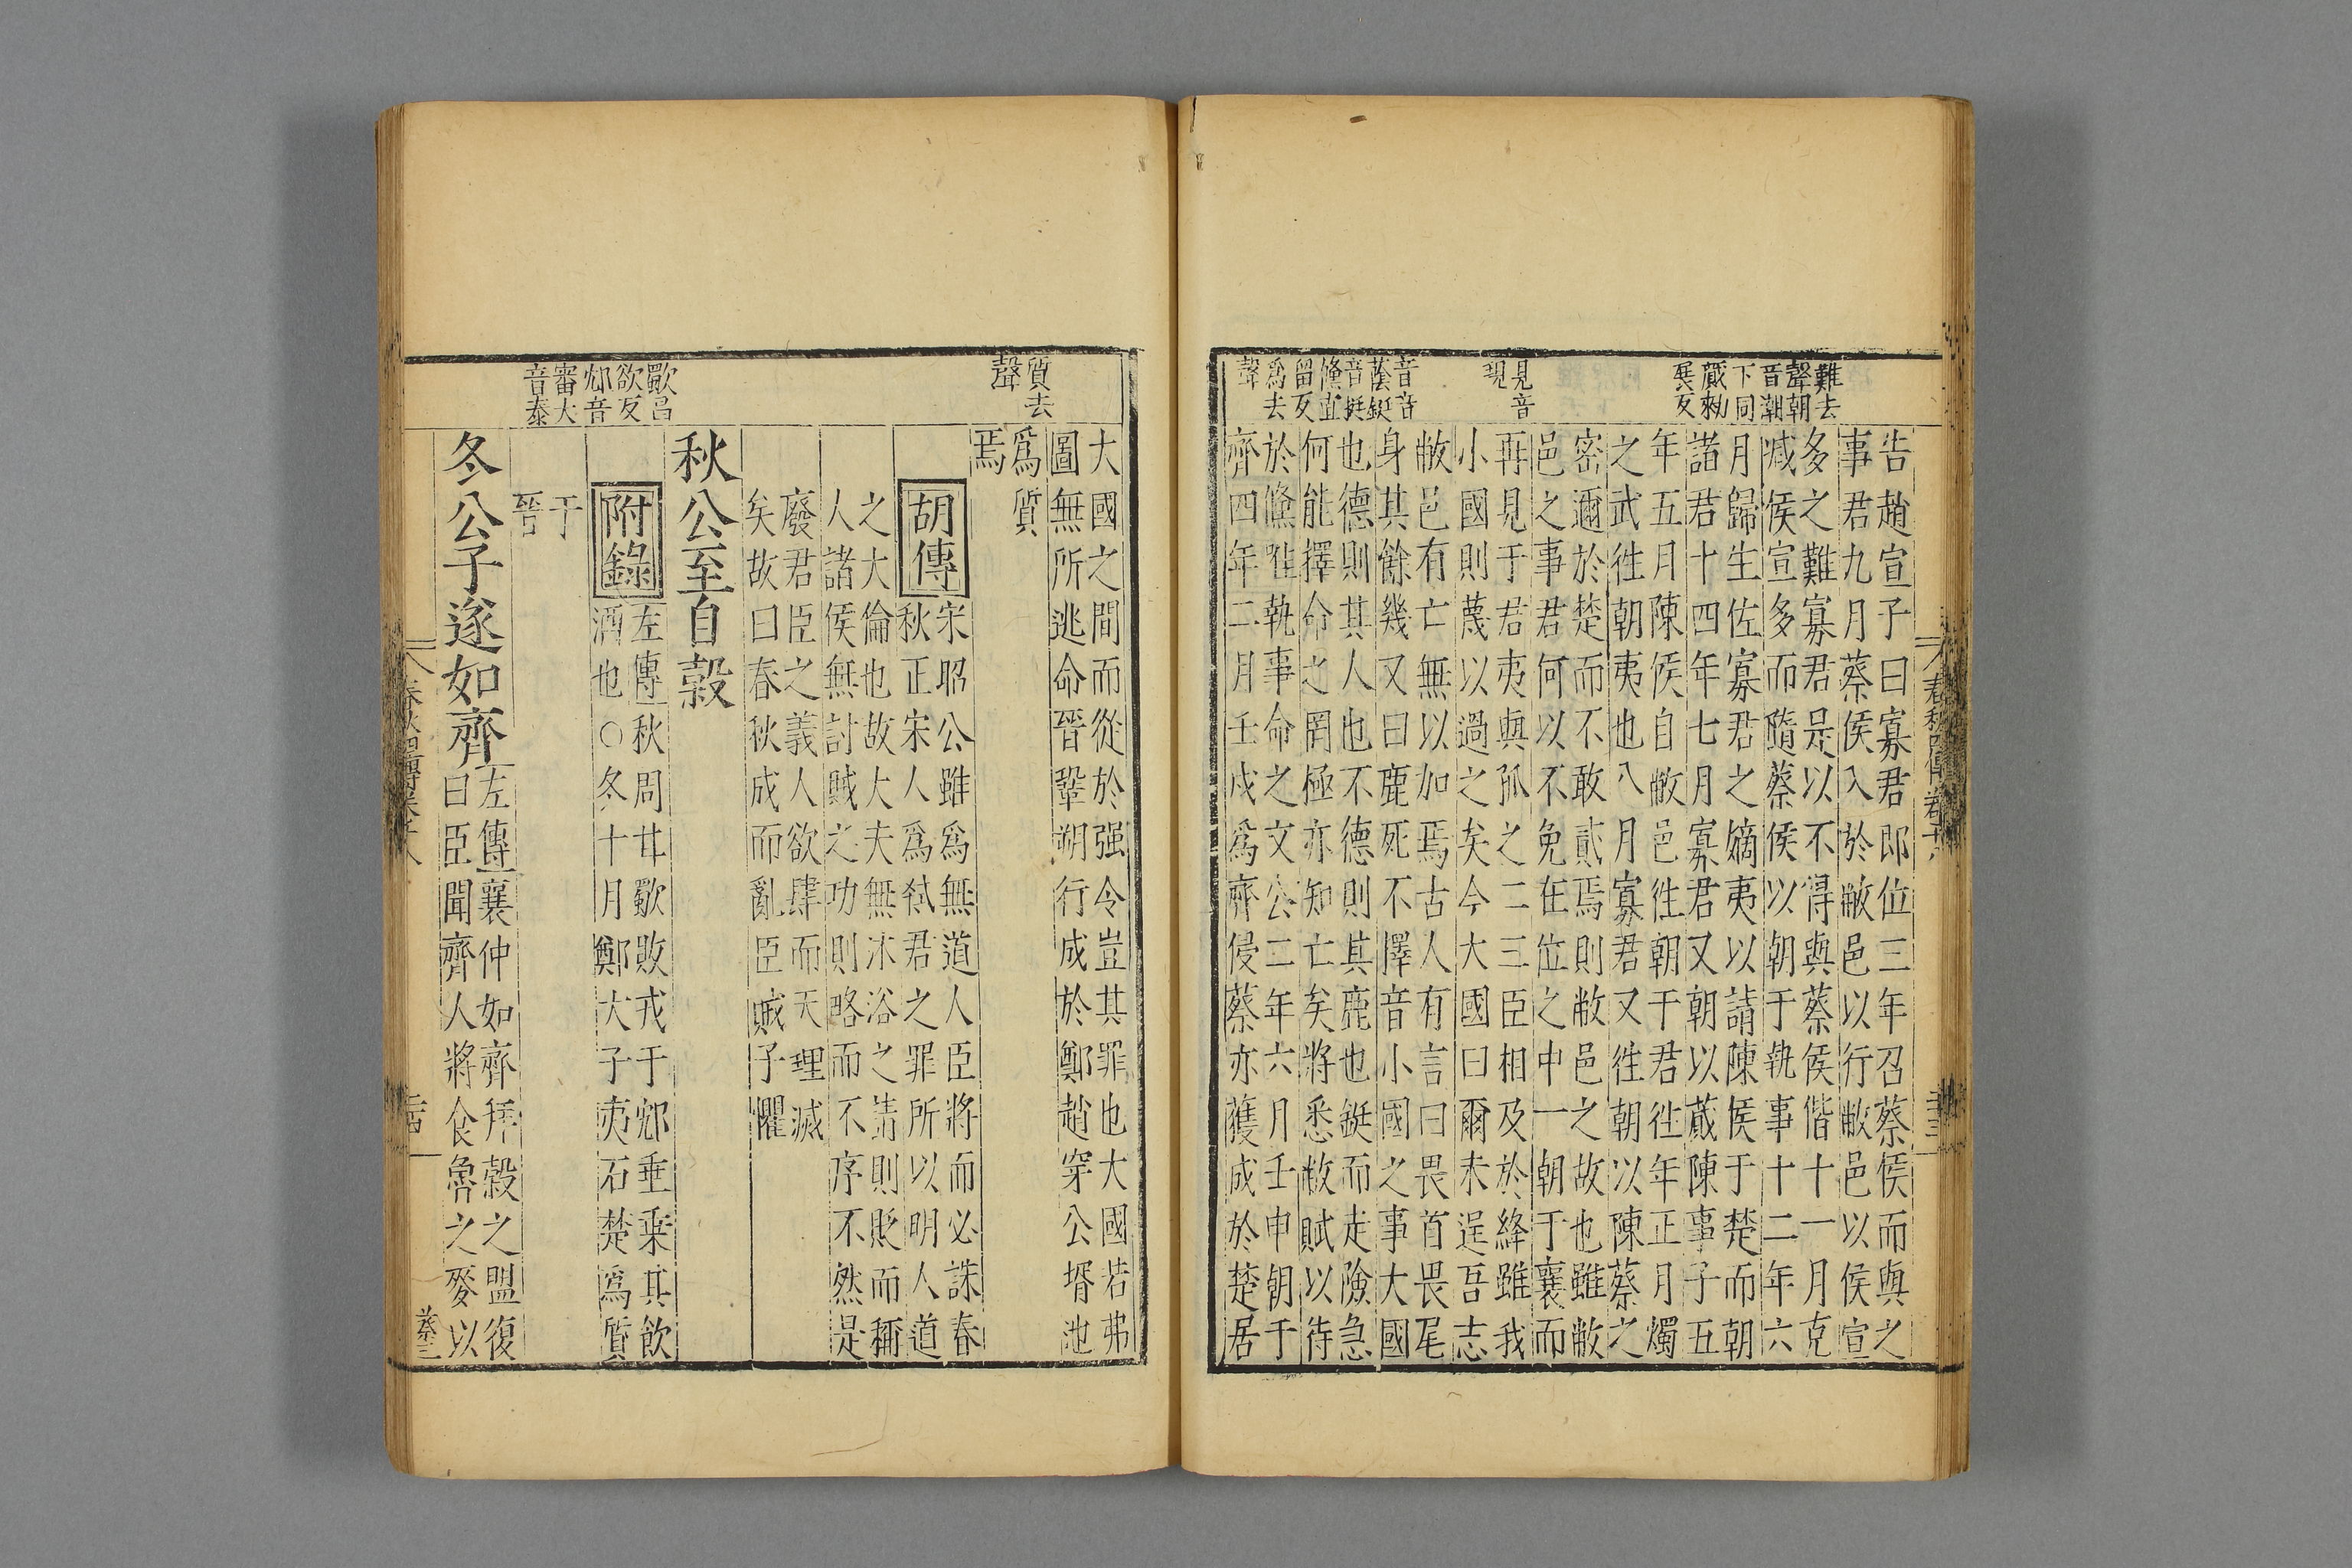 難去
聲朝
音潮
下同
蕆勑
展反
見音
現
音音
蔭鋌
音挺
鯈直
留反
爲去
聲
告趙宣子曰寡君即位三年召蔡侯而與之
事君九月蔡侯入於敝邑以行敝邑以侯宣
多之難寡君是以不得與蔡侯偕十一月克
滅侯宣多而隨蔡侯以朝于執事十二年六
月歸生佐寡君之嫡夷以請陳侯于楚而朝
諸君十四年七月寡君又朝以蕆陳事子五
年五月陳侯自敝邑徃朝于君徃年正月燭
之武徃朝夷也八月寡君又徃朝以陳蔡之
密邇於楚而不敢貳焉則敝邑之故也雖敝
邑之事君何以不免在位之中一朝于襄而
再見于君夷與孤之二三臣相及於絳雖我
小國則蔑以過之矣今大國曰爾未逞吾志
敝邑有亡無以加焉古人有言曰畏首畏尾
身其餘幾又曰鹿死不擇音小國之事大國
也德則其人也不德則其鹿也鋌而走險急
何能擇命之罔極亦知亡矣將悉敝賦以待
於鯈唯執事命之文公二年六月壬申朝于
齊四年二月壬戌爲齊侵蔡亦獲成於楚居
質去
聲
歜昌
欲反
邥音
審大
音泰
大國之間而從於强令豈其罪也大國若弗
圖無所逃命晉鞏朔行成於鄭趙穿公壻池
爲質
焉
胡傳
宋昭公雖爲無道人臣將而必誅春
秋正宋人爲弒君之罪所以明人道
之大倫也故大夫無沐浴之請則貶而稱
人諸侯無討賊之功則略而不序不然是
廢君臣之義人欲肆而天理滅
矣故曰春秋成而亂臣賊子懼
秋公至自穀
附錄
左傳秋周甘歜敗戎于邥垂乗其飲
酒也○冬十月鄭大子夷石楚爲質
于
晉
冬公子遂如齊
左傳襄仲如齊拜穀之盟復
曰臣聞齊人將食魯之麥以